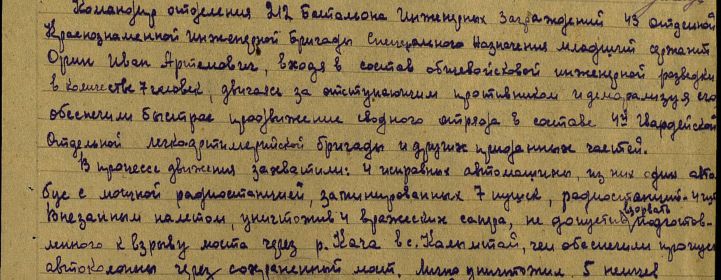 Командир отделения 212 Батальона Инженерных Заграждений 43 отдельной
Краснознаменной Инженерной Бригады Специального Назначения младший сержант
Иван Артемович, входя в состав общевойсковой инженерной разведки
в количестве 7 человек, двигаясь за отступающим противником и деморализуя его
обеспечили быстрое продвижение сводного отряда в составе 4й Гвардейской
Отдельной бригады и других приданных частей.
В процессе движения захватили: 4 исправных автомашины, из них один авто
бус с мощной радиостанцией, заминированных 7 пушек, радиостанций - 4 шт
Внезапным налетом, уничтожив 4 вражеских сапера, не допустив взорвать подготов-
ленного к взрыву моста через р. Кача в с. чем обеспечили
автоколонны через сохраненный мост. Лично уничтожил 5 немцев